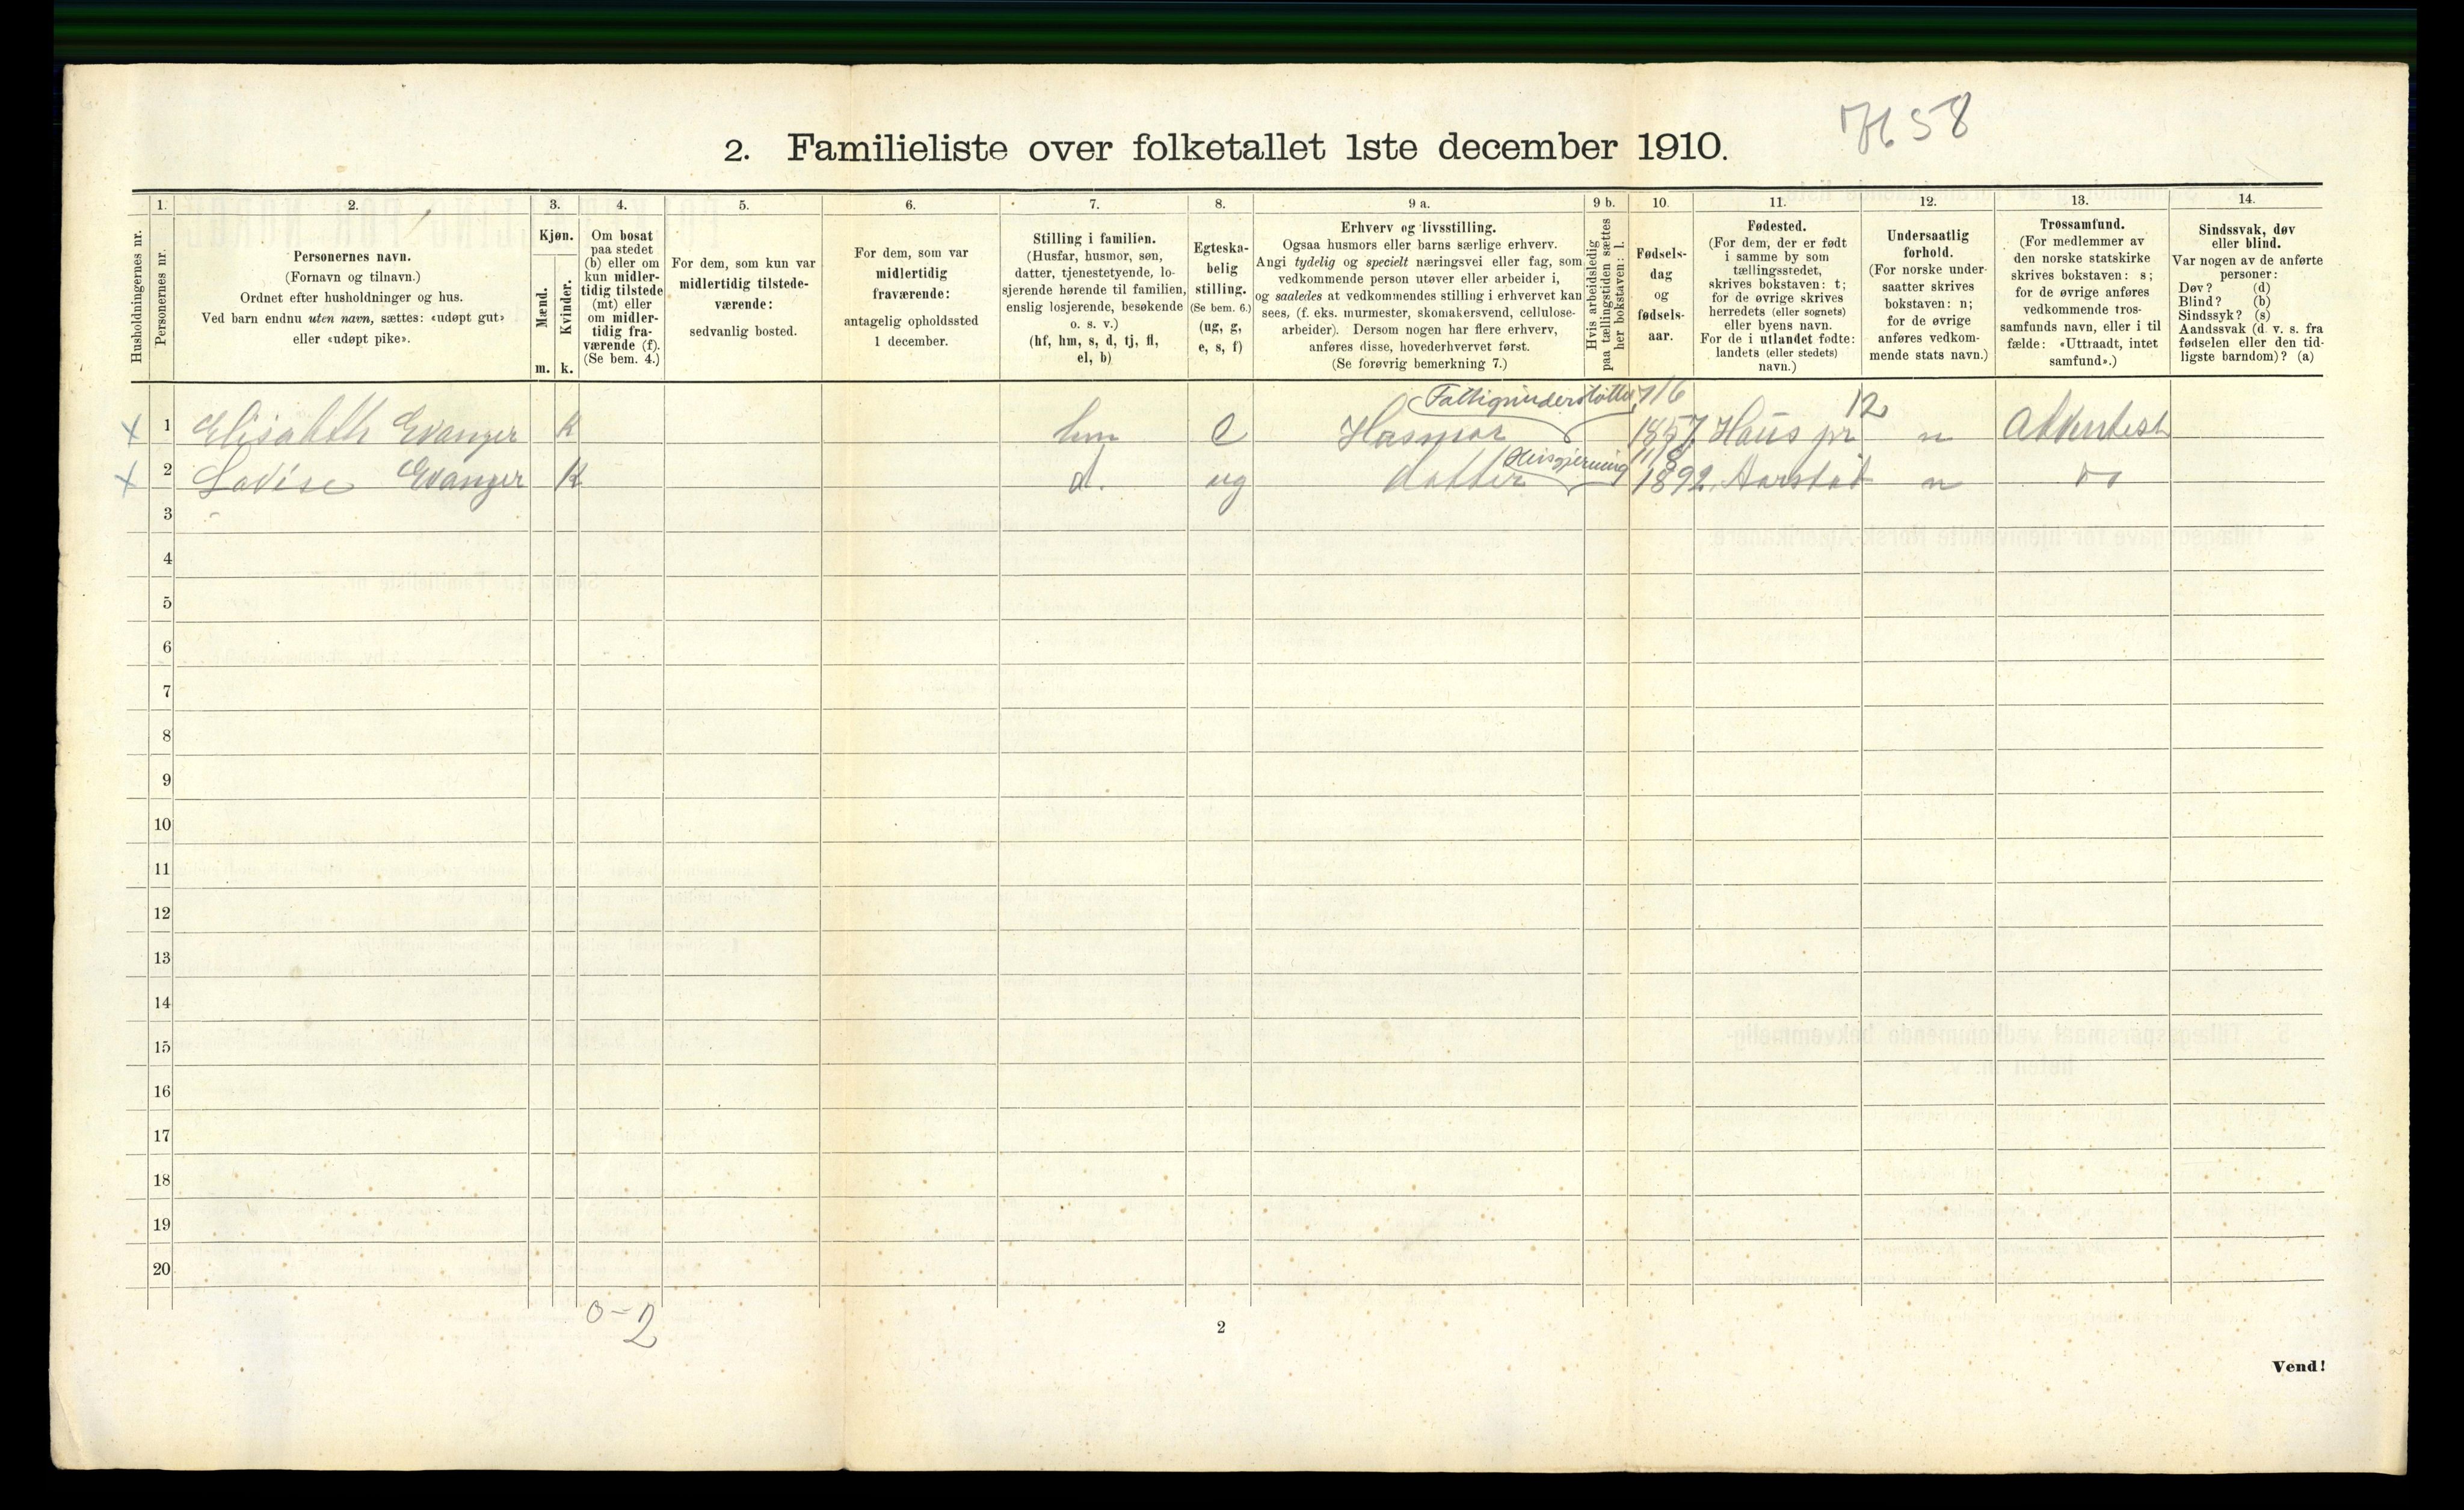 H 58
2. Familieliste over folketallet 1ste december 1910.
1. 2. 3. 4. 5. 6. 7. 8. 9 a. 9 b. 10. 11. 12. 13. 14.
Husholdningernes nr.
Personernes nr.
Personernes navn.
(Fornavn og tilnavn.)
Ordnet efter husholdninger og hus.
Ved barn endnu uten navn, sættes: «udøpt gut»
eller «udøpt pike».
Kjøn.
Mænd.
Kvinder.
m. k.
Om bosat
paa stedet
(b) eller om
kun midler-
tidig tilstede
(mt) eller
om midler-
tidig fra-
værende (f).
(Se bem. 4.)
For dem, som kun var
midlertidig tilstede-
værende:
sedvanlig bosted.
For dem, som var
midlertidig
fraværende:
antagelig opholdssted
1 december.
Stilling i familien.
(Husfar, husmor, søn,
datter, tjenestetyende, lo-
sjerende hørende til familien,
enslig losjerende, besøkende
o. s. v.)
(hf, hm, s, d, tj, fl,
el, b)
Egteska-
belig
stilling.
(Se bem. 6.)
(ug, g,
e, s, f)
Erhverv og livsstilling.
Ogsaa husmors eller barns særlige erhverv.
Angi tydelig og specielt næringsvei eller fag, som
vedkommende person utøver eller arbeider i,
og saaledes at vedkommendes stilling i erhvervet kan
sees, (f. eks. murmester, skomakersvend, cellulose-
arbeider). Dersom nogen har flere erhverv,
anføres disse, hovederhvervet først.
(Se forøvrig bemerkning 7.)
Hvis arbeidsledig
paa tællingstiden sættes
her bokstaven: l.
Fødsels-
dag
og
fødsels-
aar.
Fødested.
(For dem, der er født
i samme by som
tællingsstedet,
skrives bokstaven: t;
for de øvrige skrives
herredets (eller sognets)
eller byens navn.
For de i utlandet fødte:
landets (eller stedets)
navn.)
Undersaatlig
forhold.
(For norske under-
saatter skrives
bokstaven: n;
for de øvrige
anføres vedkom-
mende stats navn.)
Trossamfund.
(For medlemmer av
den norske statskirke
skrives bokstaven: s;
for de øvrige anføres
vedkommende tros-
samfunds navn, eller i til
fælde: «Uttraadt, intet
samfund».)
Sindssvak, døv
eller blind.
Var nogen av de anførte
personer:
Døv? (d)
Blind? (b)
Sindssyk? (s)
Aandssvak (d. v. s. fra
fødselen eller den tid-
ligste barndom)? (a)
Fattigunderstøttet 7/6 12
x 1 Elisabeth Evanger k hm e Husmor 1857 Haus pr n Adventist
Husgjerning 11/8
x 2 Lovise Evanger k d. ug datter 1892 Aarstad n do
3
4
5
6
7
8
9
10
11
12
13
14
15
16
17
18
19
20
0-2
2
Vend!